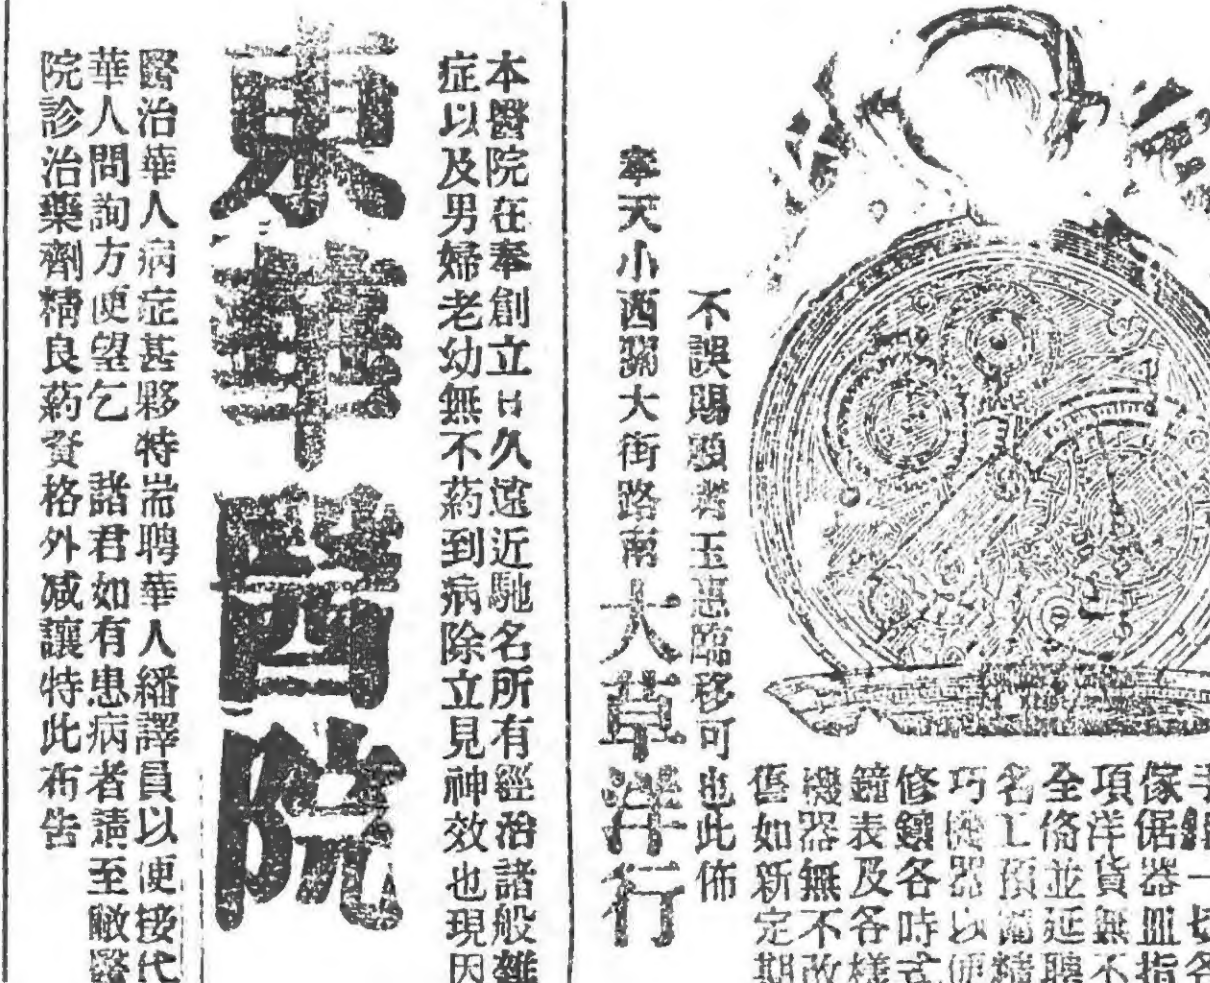 手鐲一切各
傢俱器皿指
項洋貨無不
全俻並延聘
名工預備精
巧機器以便
修鑲各時式
鐘表及各樣
機器無不改
舊如新定期
不誤賜顧者玉惠臨移可也此佈
奉天小西關大街路南
大草洋行
本醫院在奉創立日久遠近馳名所有經治諸般雜
症以及男婦老幼無不葯到病除立見神效也現因
東華醫院
醫治華人病症甚夥特耑聘華人繙譯員以便接代
華人問詢方便望乞 諸君如有患病者請至敝醫
院診治藥劑精良葯資格外减讓特此布告